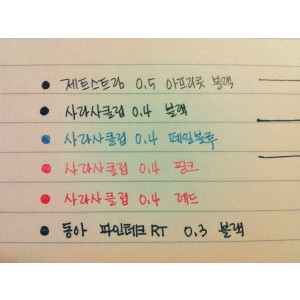 제트스트림 0.5 아프리콧 블랙
사라사클립 0.4 블랙
사라사클립 0.4 페일블루
사라사클립 0.4 핑크
사라사클립 0.4 레드
동아 파인테크RT 0.3 블랙